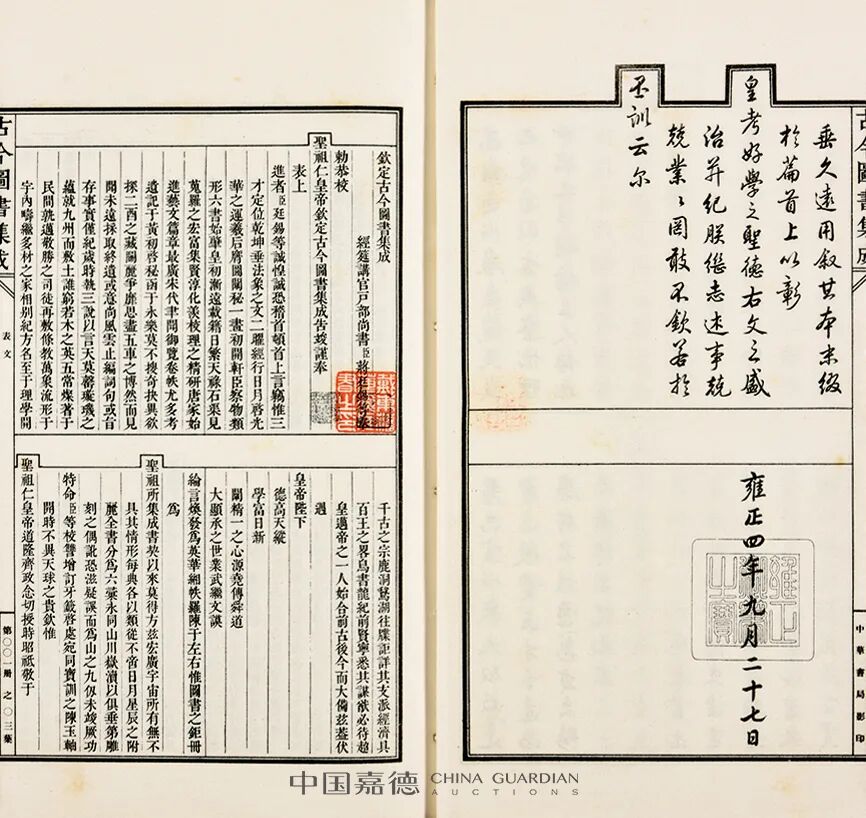 古今圖書集成
中華書局影印
垂久遠用叙其本末綴
於篇首上以彰
皇考好學之聖德右文之盛
治并紀朕繼志述事兢
兢業〻罔敢不欽若於
丕訓云尔
雍正四年九月二十七日
雍正御筆之寶
欽定古今圖書集成
經筵講官戶部尚書臣蔣廷錫等奉
勅恭校
聖祖仁皇帝欽定古今圖書集成告竣謹奉
表上
進者臣廷錫等誠惶誠恐稽首頓首上言竊惟三
才定位乾坤垂法象之文二曜經行日月啓光
華之運羲后膺圖闡秘一畫初開軒臣察物類
形六書始肇皇初漸遠載籍日繁天祿石渠見
蒐羅之宏富集賢淳化羡校理之精研唐家始
進藝文篇章最廣宋代聿開御覽卷帙尤多考
遺記于黃初啓秘函于永樂莫不搜奇抉異欲
探二酉之藏闘麗爭靡思盡五車之博然而見
聞未遠採取終遺或意尚風雲止編詞句或音
存事實僅紀歲時執三說以言天莫罄璇璣之
蘊就九州而敷土誰窮若木之英五常燦著于
民間孰邁敬勝之司徒再敷條教萬象流形于
宇內疇繼多材之家相別紀方名至于理學開
千古之宗鹿洞鵞湖往牒詎詳其支派經濟具
百王之畧鳥書龍紀前賢寧悉其謀猷必待越
皇邁帝之一人始合前古後今而大備茲蓋伏
遇
皇帝陛下
德高天縱
學富日新
闡精一之心源堯傳舜道
大顯承之世業武繼文謨
綸言煥發爲英華緗帙羅陳于左右惟圖書之鉅冊
爲
聖祖所集成書契以來莫得方茲宏廣宇宙所有無不
具其情形每典各以類從不啻日月星辰之附
麗全書分爲六彙永同山川嶽瀆以俱垂第雕
刻之偶訛恐滋疑誤而爲山之九仞未竣厥功
特命臣等校讐增訂牙籤啓處宛同寶訓之陳玉軸
開時不異天球之貴欽惟
聖祖仁皇帝道隆齊政念切授時昭祗敬于
古今圖書集成
表文
第〇〇一册之〇三葉
中国嘉德 CHINA GUARDIAN
AUCTIONS